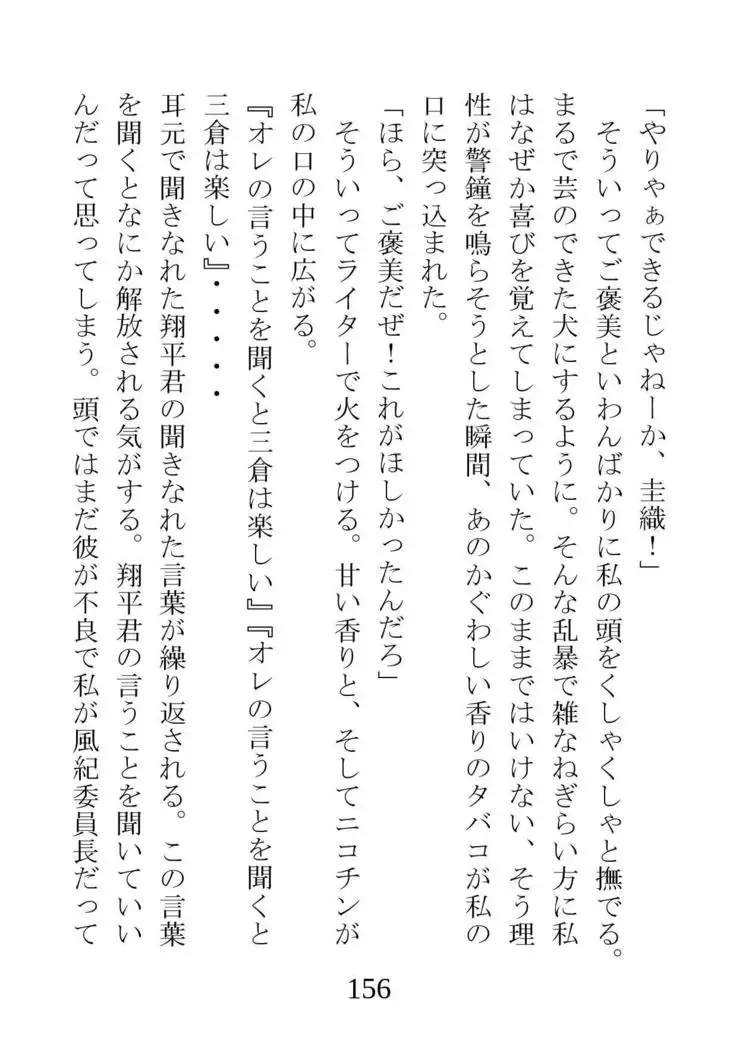 「やりゃぁできるじゃねーか、圭織！」
　そういってご褒美といわんばかりに私の頭をくしゃくしゃと撫でる。
まるで芸のできた犬にするように。そんな乱暴で雑なねぎらい方に私
はなぜか喜びを覚えてしまっていた。このままではいけない、そう理
性が警鐘を鳴らそうとした瞬間、あのかぐわしい香りのタバコが私の
口に突っ込まれた。
「ほら、ご褒美だぜ！これがほしかったんだろ」
　そういってライターで火をつける。甘い香りと、そしてニコチンが
私の口の中に広がる。
『オレの言うことを聞くと三倉は楽しい』『オレの言うことを聞くと
三倉は楽しい』・・・・・
耳元で聞きなれた翔平君の聞きなれた言葉が繰り返される。この言葉
を聞くとなにか解放される気がする。翔平君の言うことを聞いていい
んだって思ってしまう。頭ではまだ彼が不良で私が風紀委員長だって
156